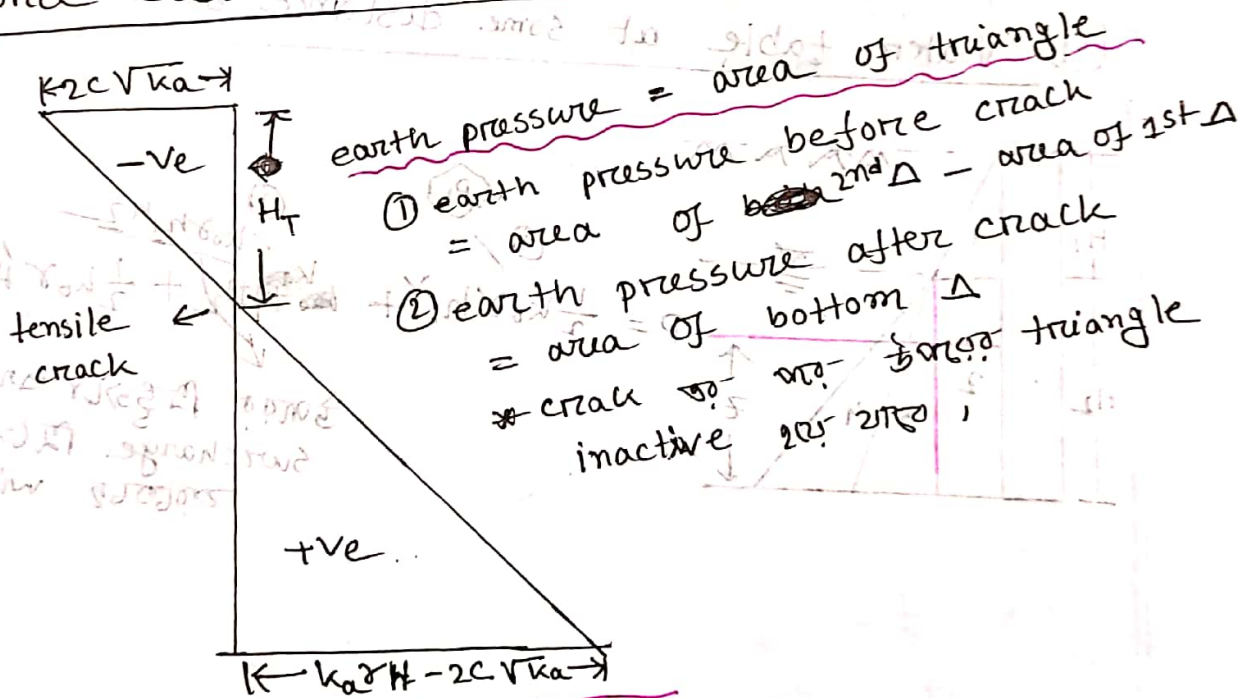 K-2C√Ka→
-Ve
H_T
tensile
crack
+Ve
K← kaγH - 2C√Ka→
earth pressure = area of triangle
① earth pressure before crack
= area of 2nd Δ - area of 1st Δ
② earth pressure after crack
= area of bottom Δ
* crak triangle
inactive হয়ে যাবে,